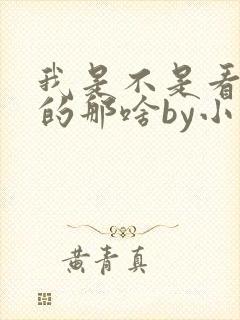 我是不是看
的那啥by小
黄青真